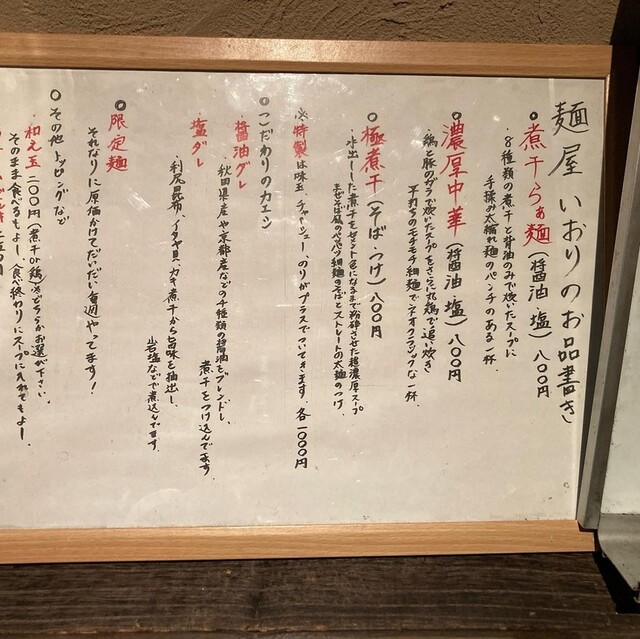 麺屋 いおりのお品書き
○煮干らぁ麺(醤油 塩)八〇〇円
・8種類の煮干と背油のみで炊いたスープに
手揉み太縮れ麺のパンチのある一杯
○濃厚中華(醤油 塩)八〇〇円
・鶏と豚のガラで炊いたスープをさらに丸鶏で追い炊き
平打ちのモチモチ細麺でネオクラシックな一杯。
○極煮干(そば・つけ)八〇〇円
・水出しした煮干をセメント色になるまで粉砕させた超濃厚スープ
まぜそば風のパツパツ細麺のそばとストレートの太麺のつけ
※特製は味玉、チャーシュー、のりがプラスでついてきます。各一〇〇〇円
○こだわりのカエシ
・醤油ダレ
・秋田県産や京都産などの千種類の醤油をブレンドし、
煮干をつけ込んでます
・塩ダレ
・利尻昆布、イタヤ貝、ガキ煮干から旨味を抽出し、
岩塩などで煮込んでます。
○限定麺
それなりに原価かけてだいたい毎週やってます!
○その他トッピングなど
・和え玉 二〇〇円(煮干or鶏)※どちらかお選び下さい。
そのまま食べるもよし、食べ終わりにスープに入れてもよし。